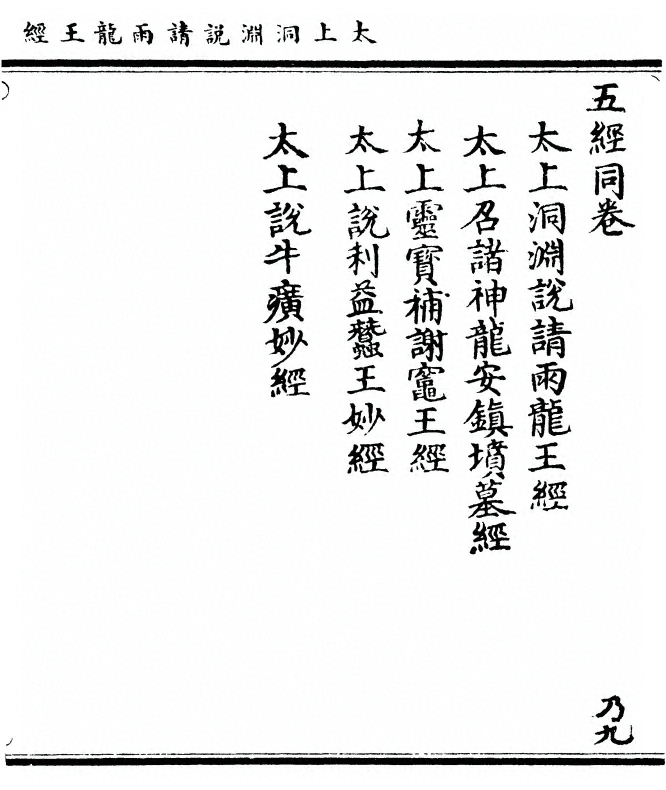 太上洞淵說請雨龍王經
五經同卷
乃九
太上洞淵說請雨龍王經
太上召諸神龍安鎮墳墓經
太上靈寶補謝竈王經
太上說利益蠶王妙經
太上說牛癀妙經